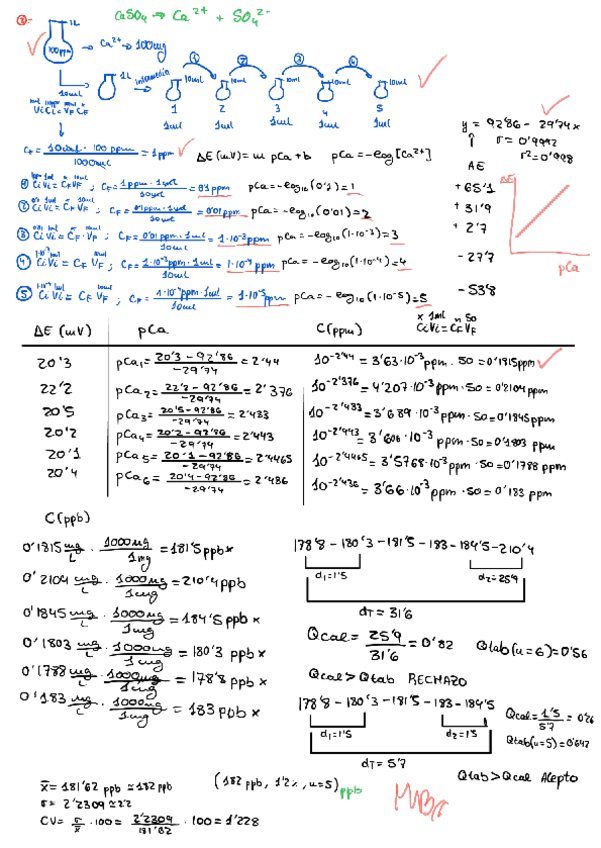 CaSO4 → Ca2+ + SO4 2-
③.
1L
100ppm → Ca2+ → 100mg
10ml
1L intermedia
① ② ③ ④
10ml 10ml 10ml 10ml 10ml
1 2 3 4 5
1ml 1ml 1ml 1ml 1ml
ViCi = VF CF
CF = 10ml · 100 ppm / 1000ml = 1ppm
ΔE (mV) = m pCa + b pCa = -log [Ca2+]
y = 92'86 - 29'74x
r = 0'9992
r2 = 0'998
① CiVi = CF VF ; CF = 1ppm · 1ml / 10ml = 0'1 ppm pCa = -log10 (0'1) = 1
② CiVi = CF · VF ; CF = 0'1ppm · 1ml / 10ml = 0'01 ppm pCa = -log10 (0'01) = 2
③ CiVi = CF · VF ; CF = 0'01 ppm · 1ml / 10ml = 1·10-3 ppm pCa = -log10 (1·10-3) = 3
④ CiVi = CF VF ; CF = 1·10-3 ppm · 1ml / 10ml = 1·10-4 ppm pCa = -log10 (1·10-4) = 4
⑤ CiVi = CF VF ; CF = 1·10-4 ppm · 1ml / 10ml = 1·10-5 ppm pCa = -log10 (1·10-5) = 5
ΔE
+ 65'1
+ 31'9
+ 2'7
- 27'7
- 53'8
ΔE
pCa
x 1ml 50
CiVi = CF VF
ΔE (mV) pCa C(ppm)
20'3 pCa1 = 20'3 - 92'86 / -29'74 = 2'44 10-2'44 = 3'63·10-3 ppm · 50 = 0'1815 ppm
22'2 pCa2 = 22'2 - 92'86 / -29'74 = 2'376 10-2'376 = 4'207·10-3 ppm · 50 = 0'2104 ppm
20'5 pCa3 = 20'5 - 92'86 / -29'74 = 2'433 10-2'433 = 3'689·10-3 ppm · 50 = 0'1845 ppm
20'2 pCa4 = 20'2 - 92'86 / -29'74 = 2'443 10-2'443 = 3'606·10-3 ppm · 50 = 0'1803 ppm
20'1 pCa5 = 20'1 - 92'86 / -29'74 = 2'4465 10-2'4465 = 3'5768·10-3 ppm · 50 = 0'1788 ppm
20'4 pCa6 = 20'4 - 92'86 / -29'74 = 2'436 10-2'436 = 3'66·10-3 ppm · 50 = 0'183 ppm
C(ppb)
0'1815 mg/L · 1000mg / 1mg = 181'5 ppb x
0'2104 mg/L · 1000mg / 1mg = 210'4 ppb
0'1845 mg/L · 1000mg / 1mg = 184'5 ppb x
0'1803 mg/L · 1000mg / 1mg = 180'3 ppb x
0'1788 mg/L · 1000mg / 1mg = 178'8 ppb x
0'183 mg/L · 1000mg / 1mg = 183 ppb x
178'8 - 180'3 - 181'5 - 183 - 184'5 - 210'4
d1=1'5 d2=25'9
dT = 31'6
Qcal = 25'9 / 31'6 = 0'82 Qtab (n=6) = 0'56
Qcal > Qtab RECHAZO
178'8 - 180'3 - 181'5 - 183 - 184'5
d1=1'5 d2=1'5
dT = 5'7
Qcal = 1'5 / 5'7 = 0'26
Qtab (n=5) = 0'642
Qtab > Qcal Acepto
x̄ = 181'62 ppb ≃ 182 ppb
σ = 2'2309 ≃ 2'2
CV = σ/x̄ · 100 = 2'2309 / 181'62 · 100 = 1'228
(182 ppb, 1'2%, n=5) ppb